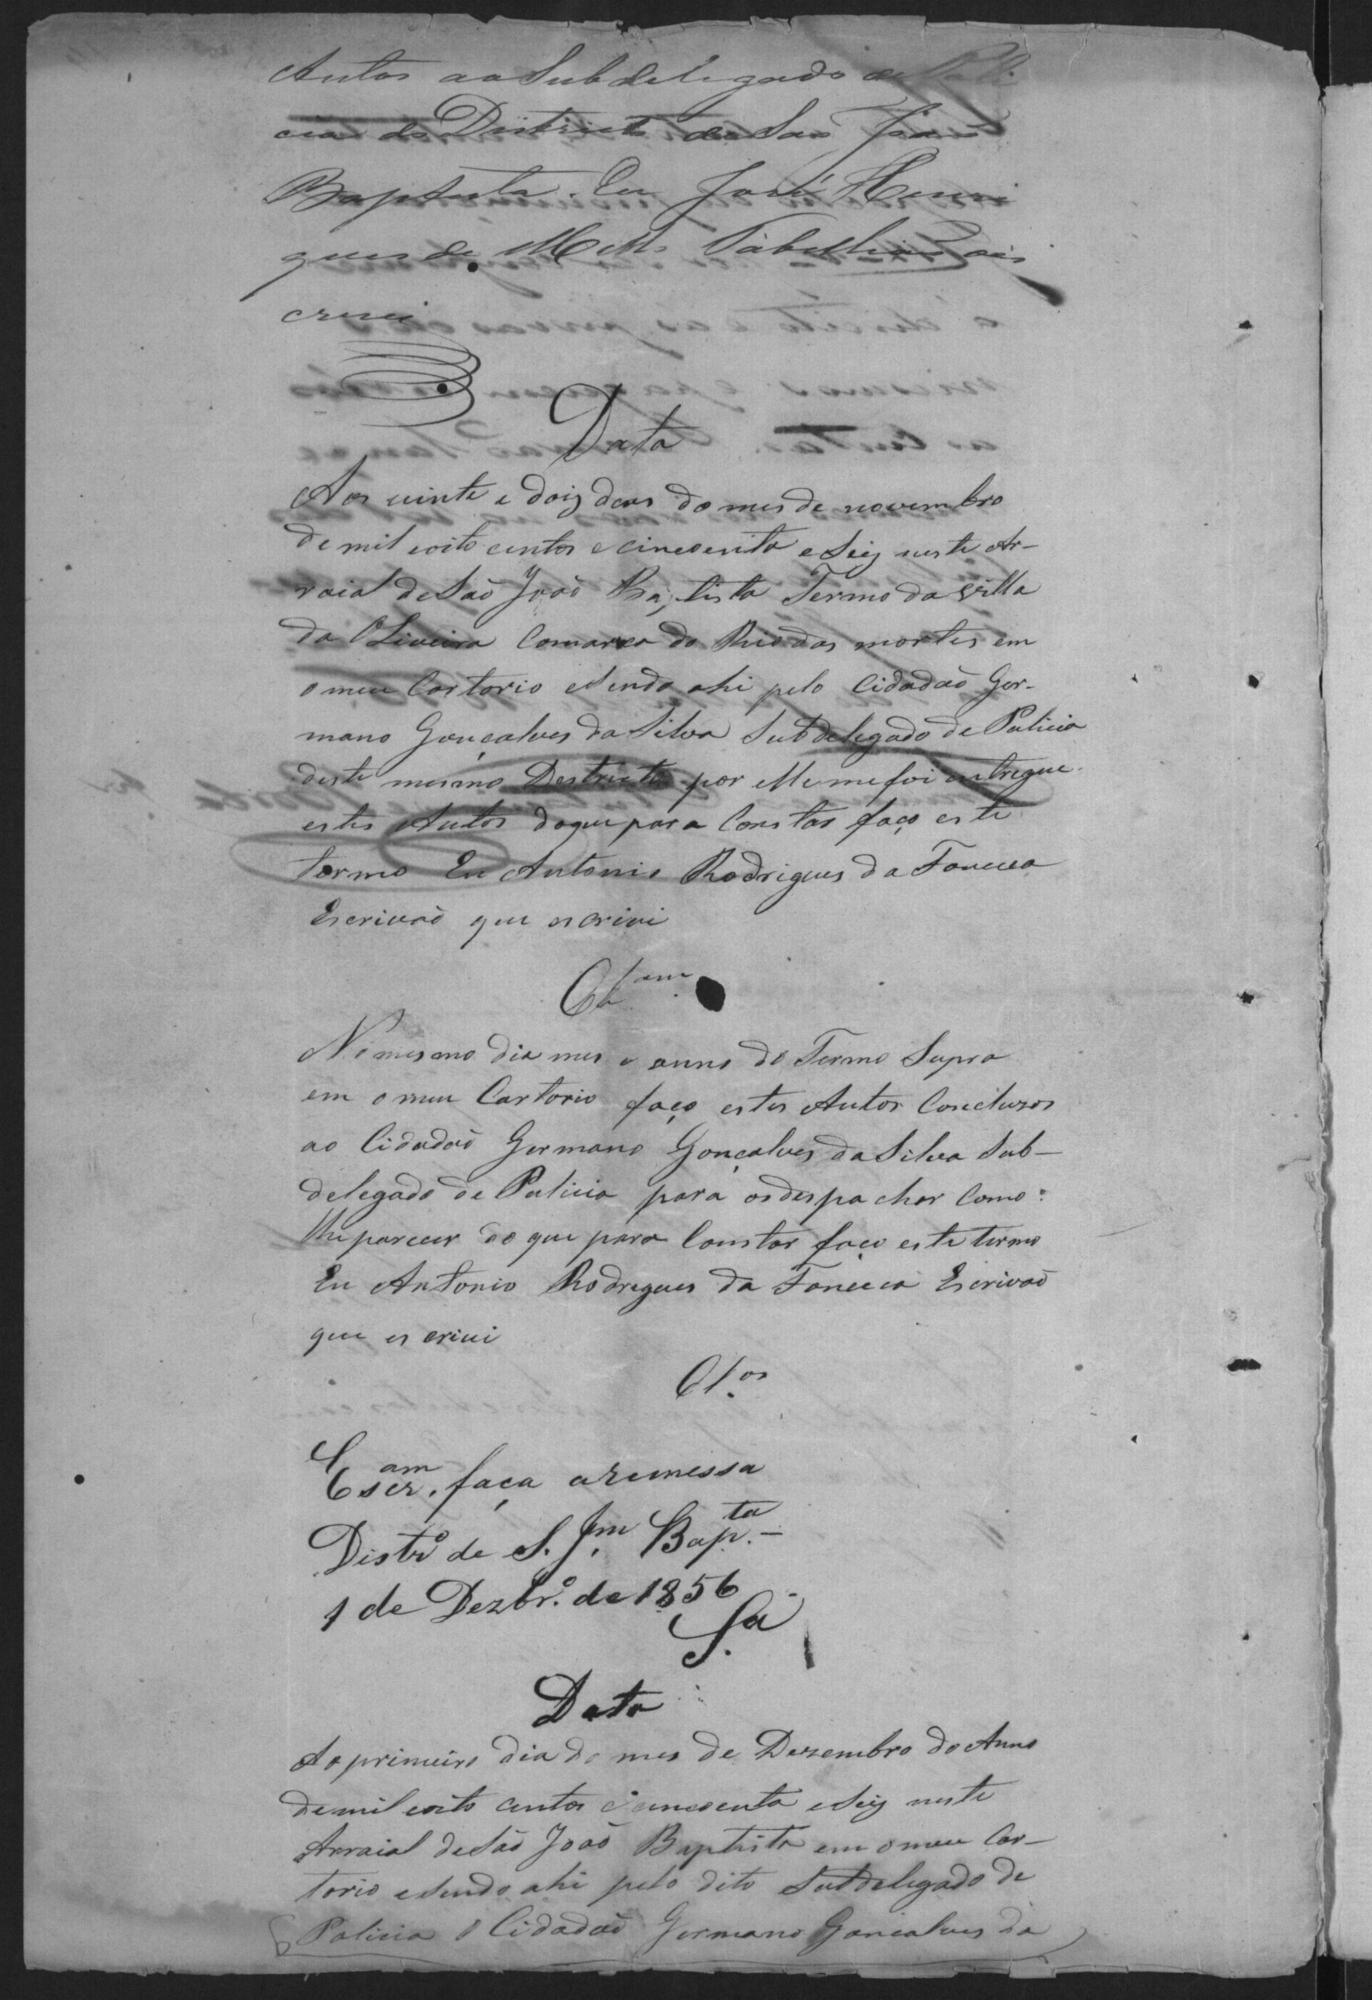 Autos ao Subdelegado de Poli
cia do Districto de São João
Baptista. Eu José Henri
ques de Mello Tabelliao o es
crevi
Data
Aos vinte e doiz deas do mes de novembro
de mil eoito centos e cincoenta e Seiz neste Ar-
raial de São João Baptista Termo da villa
da Oliveira Comarca do Rio das mortes em
o meu Cartorio esendo ahi pelo Cidadaõ Ger-
mano Gonçalves da Silva Subdelegado de Policia
deste mesmo Destricto por elle me foi entregue
estes Autos do que para Constar faço este
termo Eu Antonio Rodrigues da Fonceca
Escrivaõ que escrivi
Clam
No mesmo dia mes e anno do Termo Supra
em o meu Cartorio faço estes Autos Concluzos
ao Cidadaõ Germano Gonçalves da Silva Sub-
delegado de Policia para os despachar Como
lhe parecer do que para Constar faço este termo
Eu Antonio Rodrigues da Fonceca Escrivaõ
que escrivi
Clos
Escram. faça aremessa
Distro de S. Jm. Bapta. -
1 de Dezbro. de 1856
Sa
Data
Ao primeiro dia do mes de Dezembro do Anno
de mil eoito centos e cincoenta e Seiz neste
Arraial de São João Baptista em o meu Car-
torio esendo ahi pelo dito Subdelegado de
Policia o Cidadaõ Germano Goncalves da